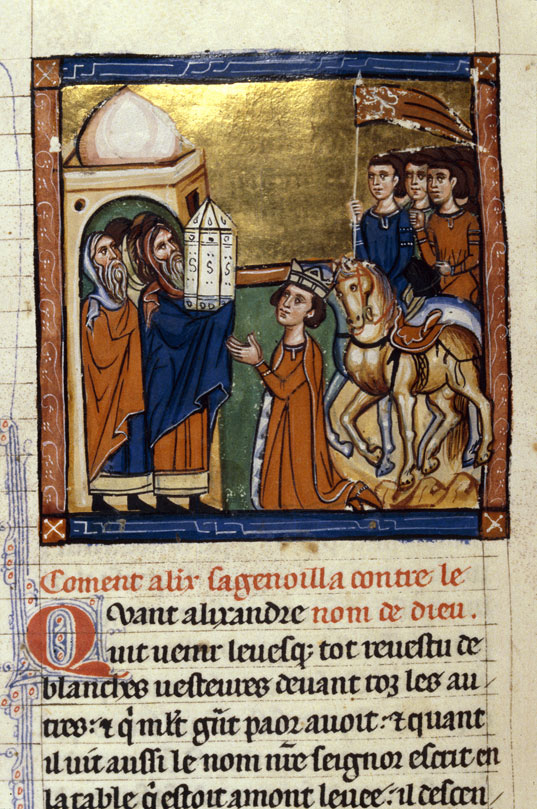 Coment alix sagenoilla contre le
Quant alixandre nom de dieu.
uit uenir leuesq; tot reuestu de
blanches uesteures deuant toz les au
tres: ⁊ q̃ mlt̃ gñt paor auoit: ⁊ quant
il uit aussi le nom nr̃e seignor escrit en
la table q̃ estoit amont leuee: il descen